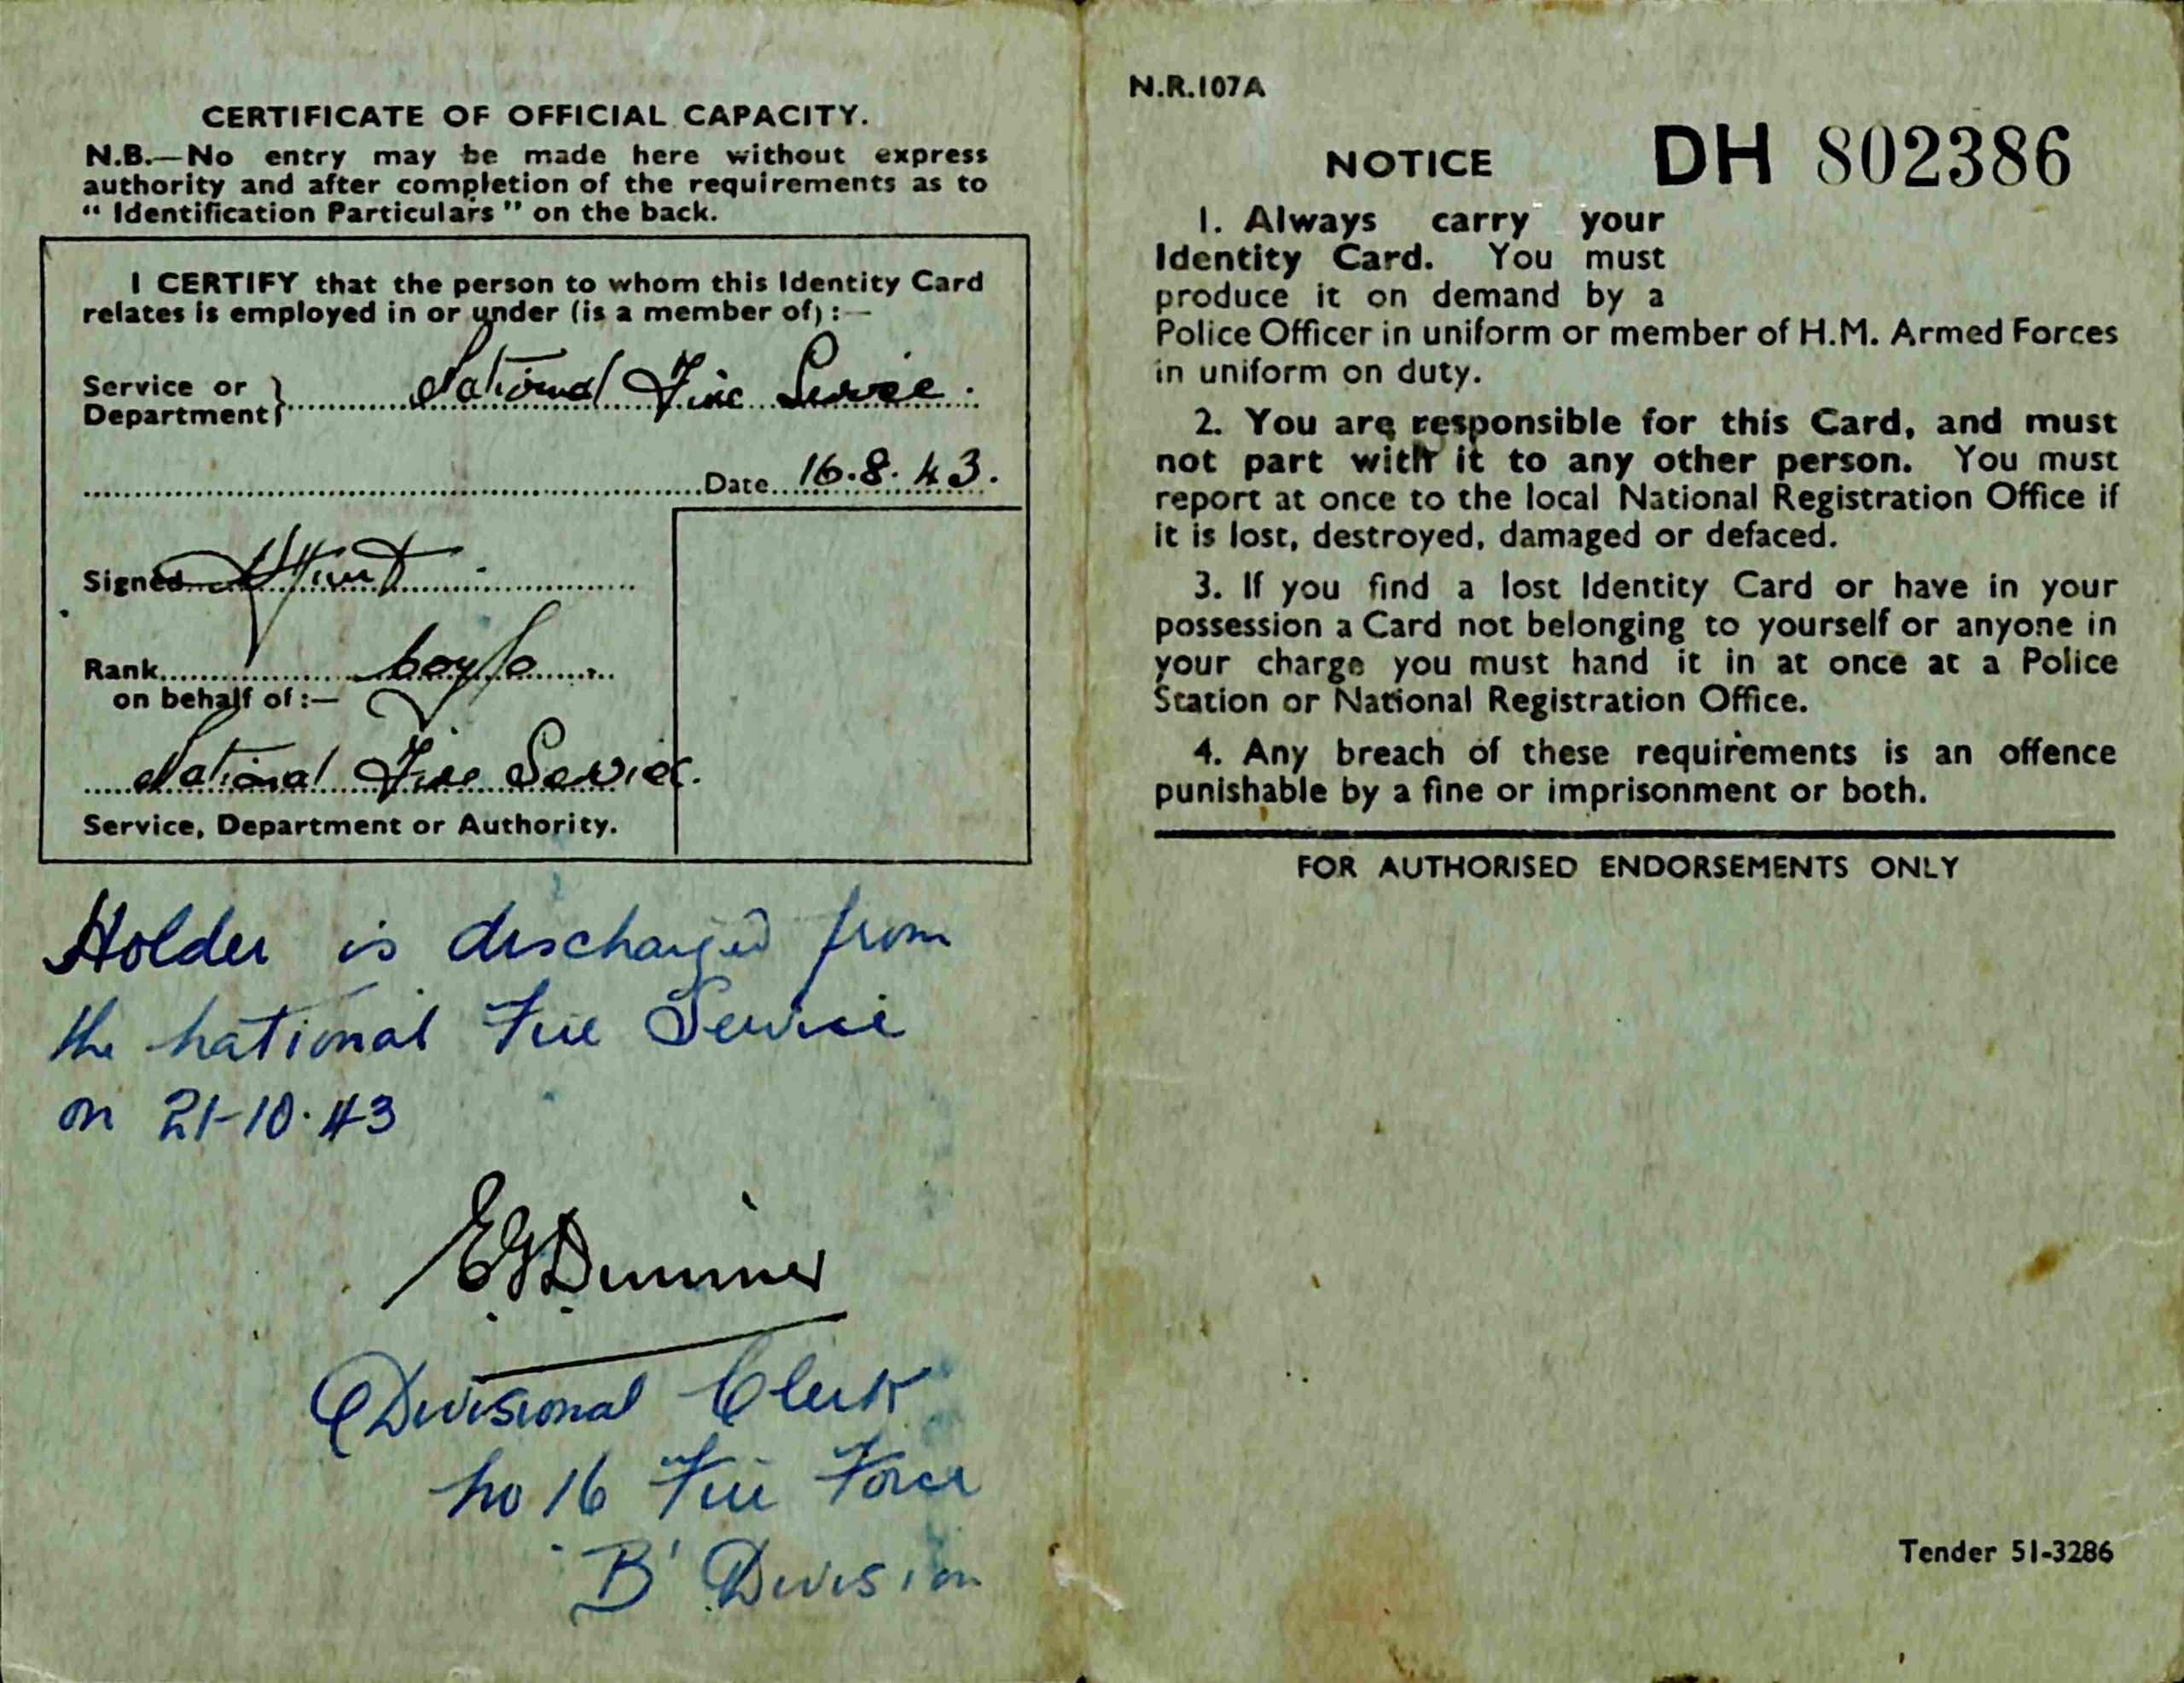 CERTIFICATE OF OFFICIAL CAPACITY.
N.B.—No entry may be made here without express
authority and after completion of the requirements as to
“ Identification Particulars ” on the back.
I CERTIFY that the person to whom this Identity Card
relates is employed in or under (is a member of) :—
Service or
Department} National Fire Service.
Date 16.8.43.
Signed
Rank
on behalf of :—
National Fire Service.
Service, Department or Authority.
Holder is discharged from
the national Fire Service
on 21-10-43
Divisional Clerk
No 16 Fire Force
'B' Division
N.R.107A
NOTICE DH 802386
1. Always carry your
Identity Card. You must
produce it on demand by a
Police Officer in uniform or member of H.M. Armed Forces
in uniform on duty.
2. You are responsible for this Card, and must
not part with it to any other person. You must
report at once to the local National Registration Office if
it is lost, destroyed, damaged or defaced.
3. If you find a lost Identity Card or have in your
possession a Card not belonging to yourself or anyone in
your charge you must hand it in at once at a Police
Station or National Registration Office.
4. Any breach of these requirements is an offence
punishable by a fine or imprisonment or both.
FOR AUTHORISED ENDORSEMENTS ONLY
Tender 51-3286